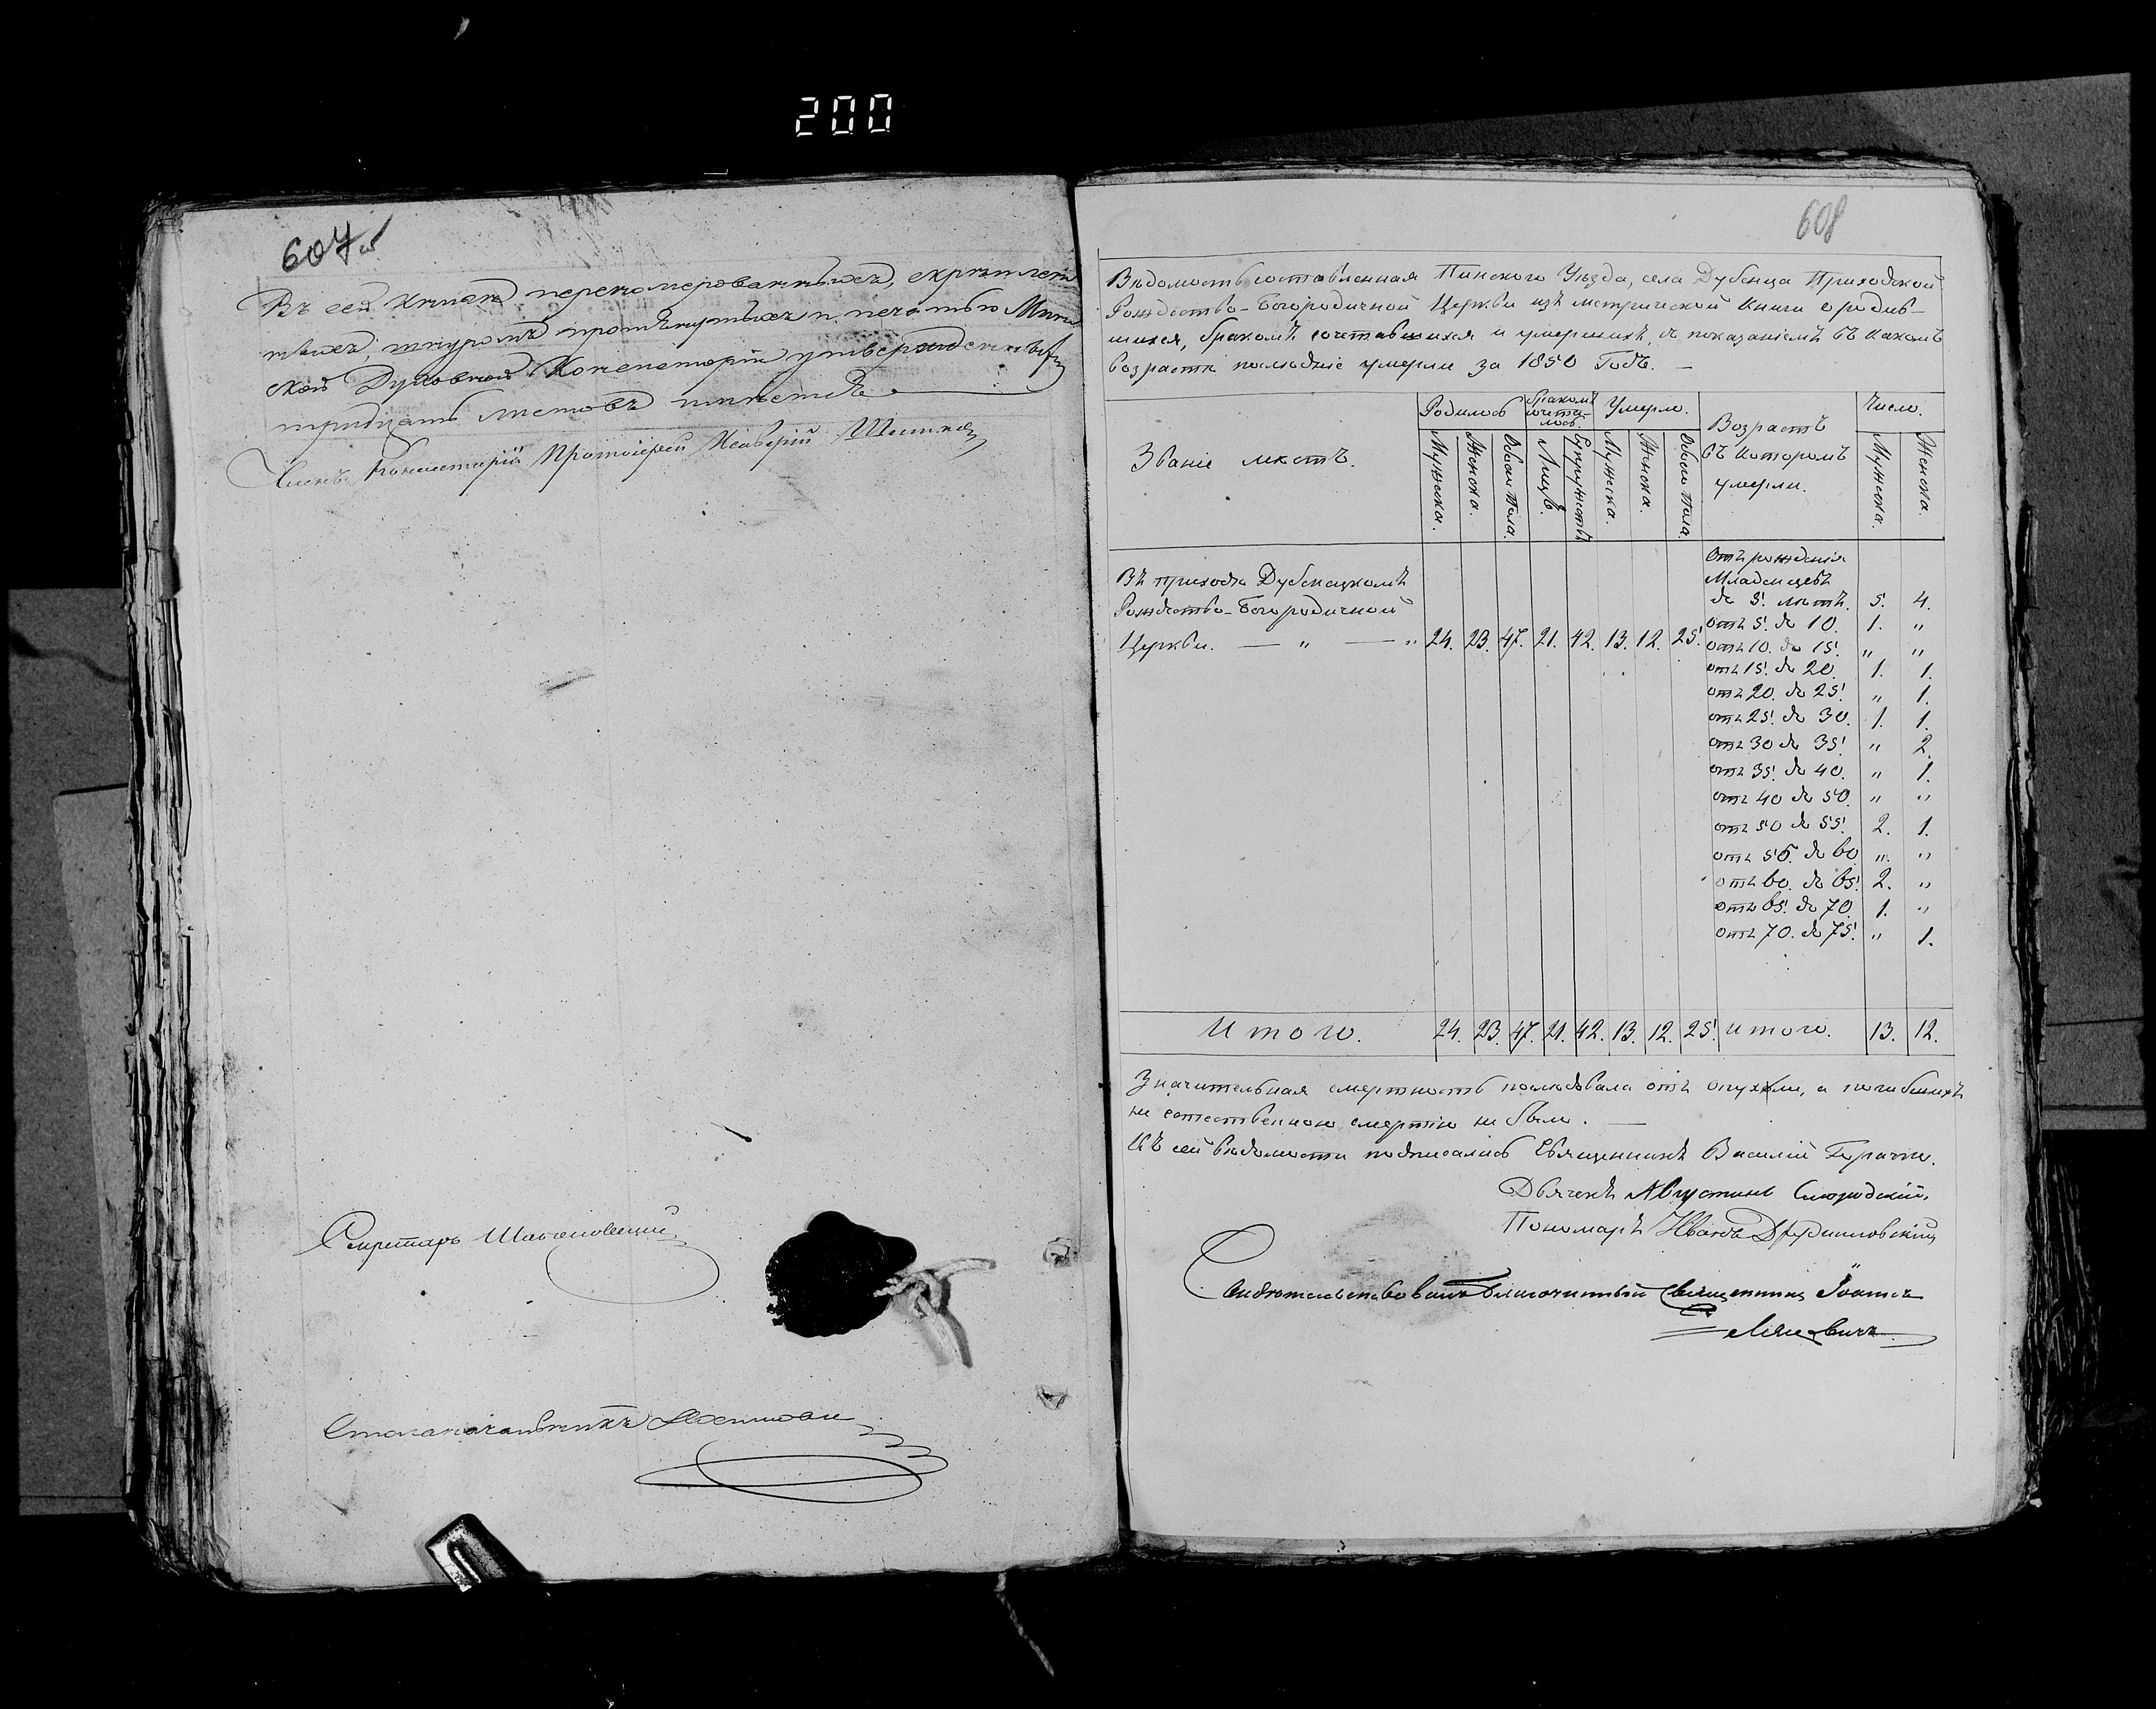 200
607
Въ сей книгѣ перенумерованныхъ, скрѣплен
ныхъ, шнуромъ протянутыхъ и печатью Мин
ской Духовной Консисторіи утвержденныхъ
тридцать листовъ
Членъ Консисторіи Протоіерей
Секретарь
Столоначальникъ
608
Вѣдомость составленная Пинского Уѣзда, села Дубенца Приходской
Рождество-Богородичной Церкви изъ метрической книги о родив-
шихся, бракомъ сочетавшихся и умершихъ, съ показаніемъ въ какомъ
возрастѣ послѣдніе умерли за 1850 Годъ.
Званіе мѣстъ.
Родилось
Бракомъ сочета-лось.
Умерло.
Возрастъ въ которомъ умерли.
Число.
Мужска. Женска. Обоего Пола. Лицъ. Мужска. Женска. Обоего Пола. Мужска. Женска.
Въ приходѣ Дубенецкомъ
Рождество-Богородичной
Церкви. — " — " 24. 23. 47. 21. 42. 13. 12. 25.
Отъ рожденія
Младенцевъ
до 5. лѣтъ. 5. 4.
отъ 5. до 10. 1. "
отъ 10. до 15. " "
отъ 15. до 20. 1. 1.
отъ 20. до 25. " 1.
отъ 25. до 30. 1. 1.
отъ 30 до 35. " 2.
отъ 35. до 40. " 1.
отъ 40 до 50. " "
отъ 50 до 55. 2. 1.
отъ 55. до 60 " "
отъ 60. до 65. 2. "
отъ 65. до 70. 1. "
отъ 70. до 75. " 1.
Итого. 24. 23. 47. 21. 42. 13. 12. 25. Итого. 13. 12.
Значительная смертность послѣдовала отъ опухоли, а погибшихъ
не естественною смертію не было. —
Къ сей вѣдомости подписались Священникъ Василій
Дьячекъ Августинъ
Пономарь Иванъ
Свидѣтельствовалъ Благочинный Священникъ Іоаннъ